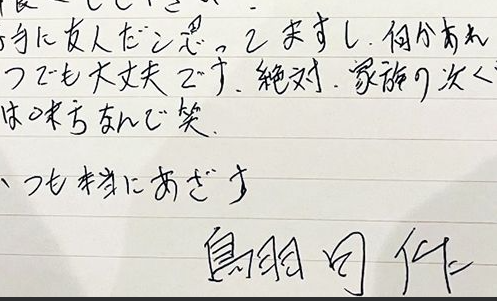 手に友人だと思ってますし、何かあれ
つでも大丈夫です。絶対、家族の次く
は味方なんで笑
つも本当にあざす
鳥羽